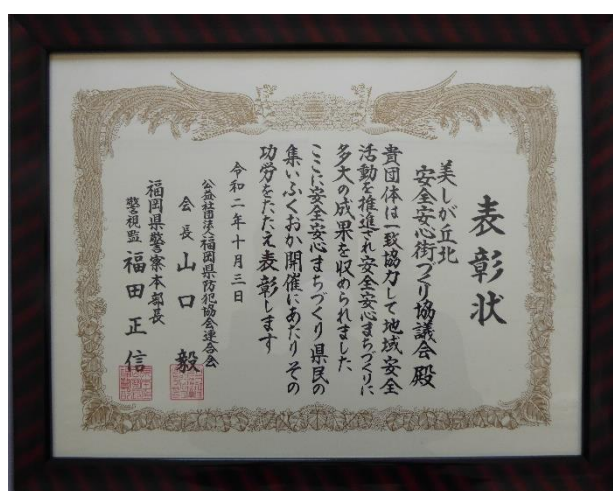 表彰状
美しが丘北
安全安心街づくり協議会殿
貴団体は一致協力して地域安全
活動を推進され安全安心まちづくりに
多大の成果を収められました
ここに安全安心まちづくり県民の
集いふくおか開催にあたりその
功労をたたえ表彰します
令和二年十月三日
公益社団法人福岡県防犯協会連合会
会長山口毅
福岡県警察本部長
警視監福田正信